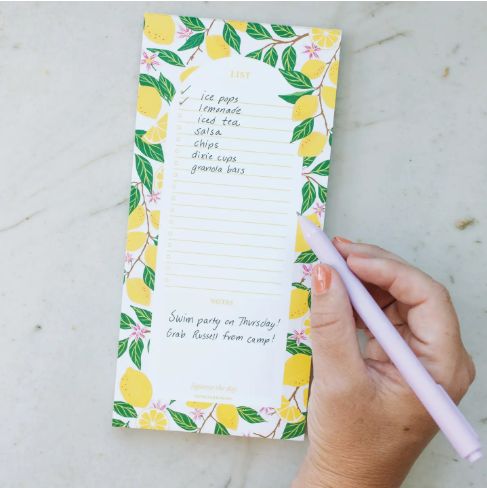 LIST
ice pops
lemonade
iced tea
salsa
chips
dixie cups
granola bars
NOTES
Swim party on Thursday!
Grab Russell from camp!
Squeeze the day